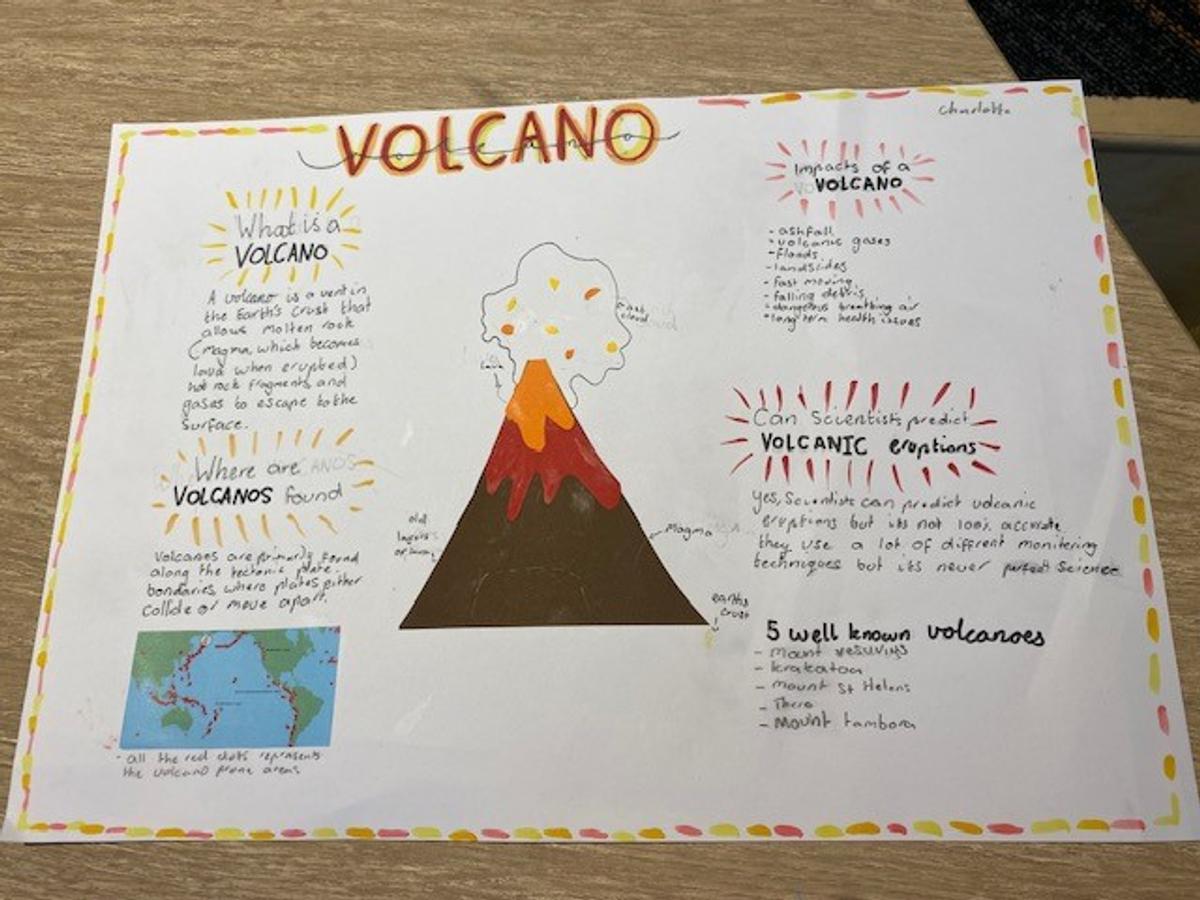 Charlotte
VOLCANO
What is a
VOLCANO
A volcano is a vent in
the Earth's crust that
allows molten rock
(magma, which becomes
lava when erupted)
hot rock fragments, and
gases to escape to the
surface.
Where are
VOLCANOS found
Volcanoes are primarly found
along the tectonic plate
bondaries, where plates either
collide or move apart.
- all the red dots represents
the volcano prone areas
ash
cloud
lava
old
layers
of
magma
earths
crust
Impacts of a
VOLCANO
- ashfall
- volcanic gases
- floods
- landsides
- fast moving
- falling debris
- dangerous breathing air
- long term health issues
Can Scientists predict
VOLCANIC eruptions
Yes, Scientists can predict volcanic
eruptions but its not 100% accurate
they use a lot of different monitering
techniques but its never perfect science
5 well known volcanoes
- mount vesuvius
- krakatoa
- mount St Helens
- Mount tambora